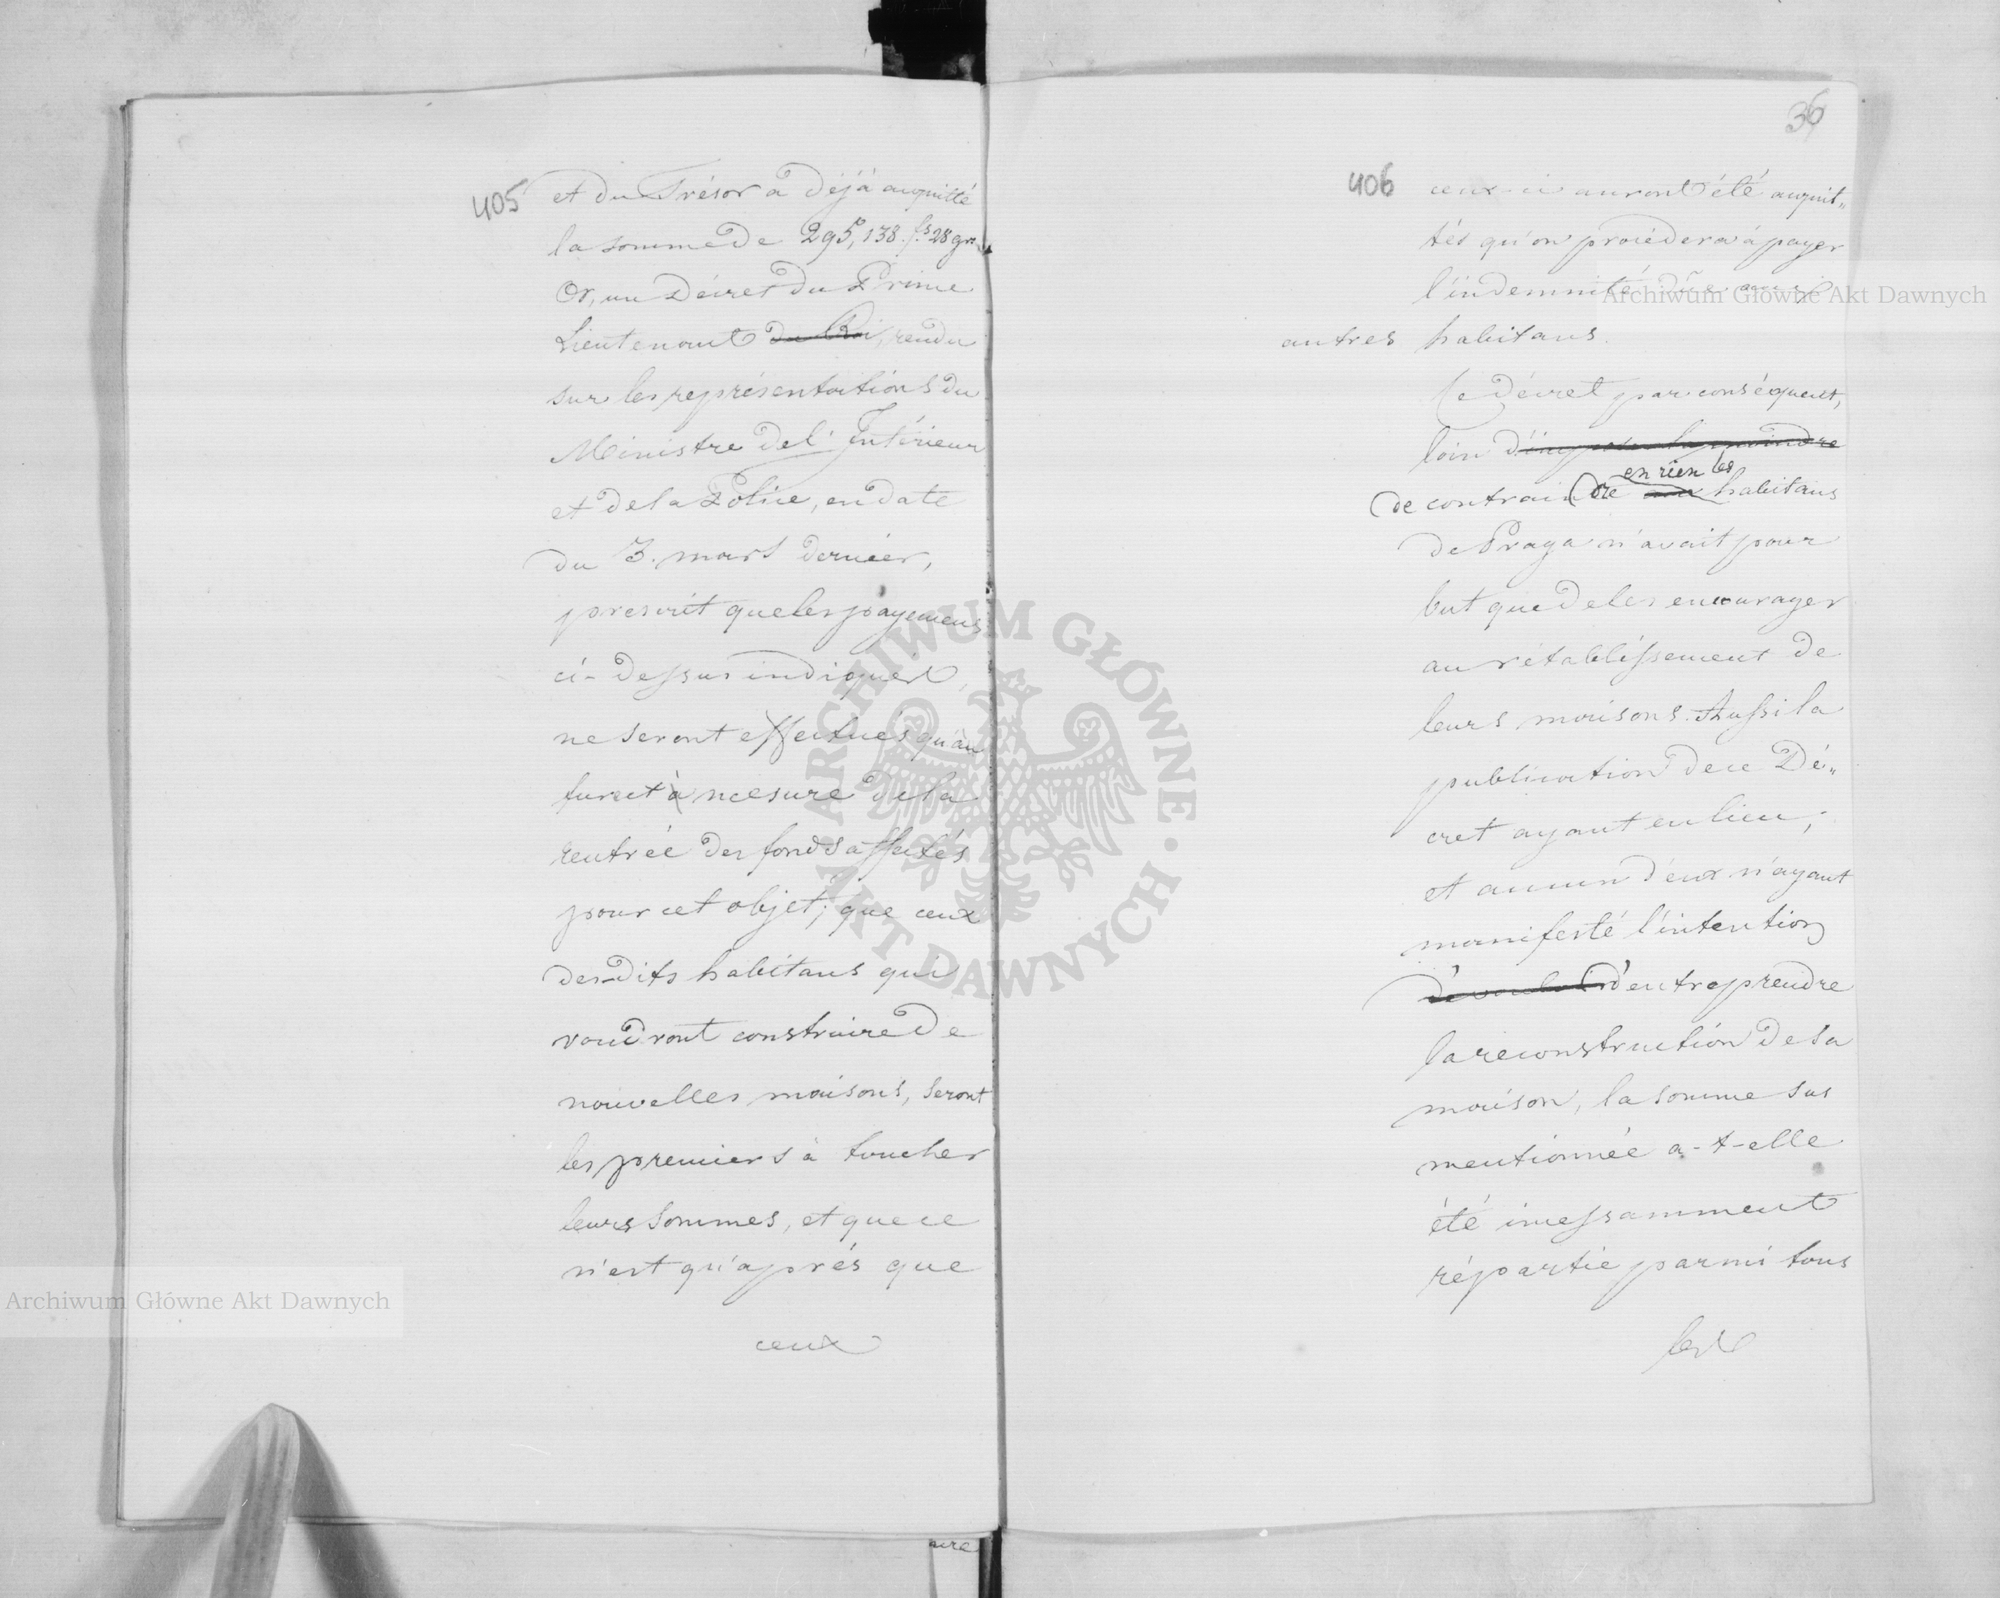 405
et du Trésor a déjà acquitté
la somme de 295,138. fs 28 gr.
Or, un Décret du Prince
Lieutenant du Roi, rendu
sur les représentations du
Ministre de l'Intérieur
et de la Police, en date
du 3. mars dernier,
prescrit que les payemens
ci-dessus indiqués,
ne seront effectués qu'au
fur et à mesure de la
rentrée des fonds affectés
pour cet objet; que ceux
des dits habitans qui
voudront construire de
nouvelles maisons, seront
les premiers à toucher
leurs sommes, et que ce
n'est qu'après que
ceux
36
406
ceux-ci auront été acquit„
tés qu'on procédera à payer
l'indemnité düe aux
autres habitans.
Ce décret par conséquent,
loin d'imposer la moindre
en rien les
de contraindre habitans
de Praga n'avait pour
but que de les encourager
au rétablissement de
leurs maisons. Aussi la
publication de ce Dé„
cret ayant eu lieu,
et aucun d'eux n'ayant
manifesté l'intention
de vouloir d'entreprendre
la reconstruction de sa
maison, la somme sus
mentionnée a-t-elle
été incessamment
répartie parmi tous
les
Archiwum Główne Akt Dawnych
Archiwum Główne Akt Dawnych
ARCHIWUM GŁÓWNE · AKT DAWNYCH ·